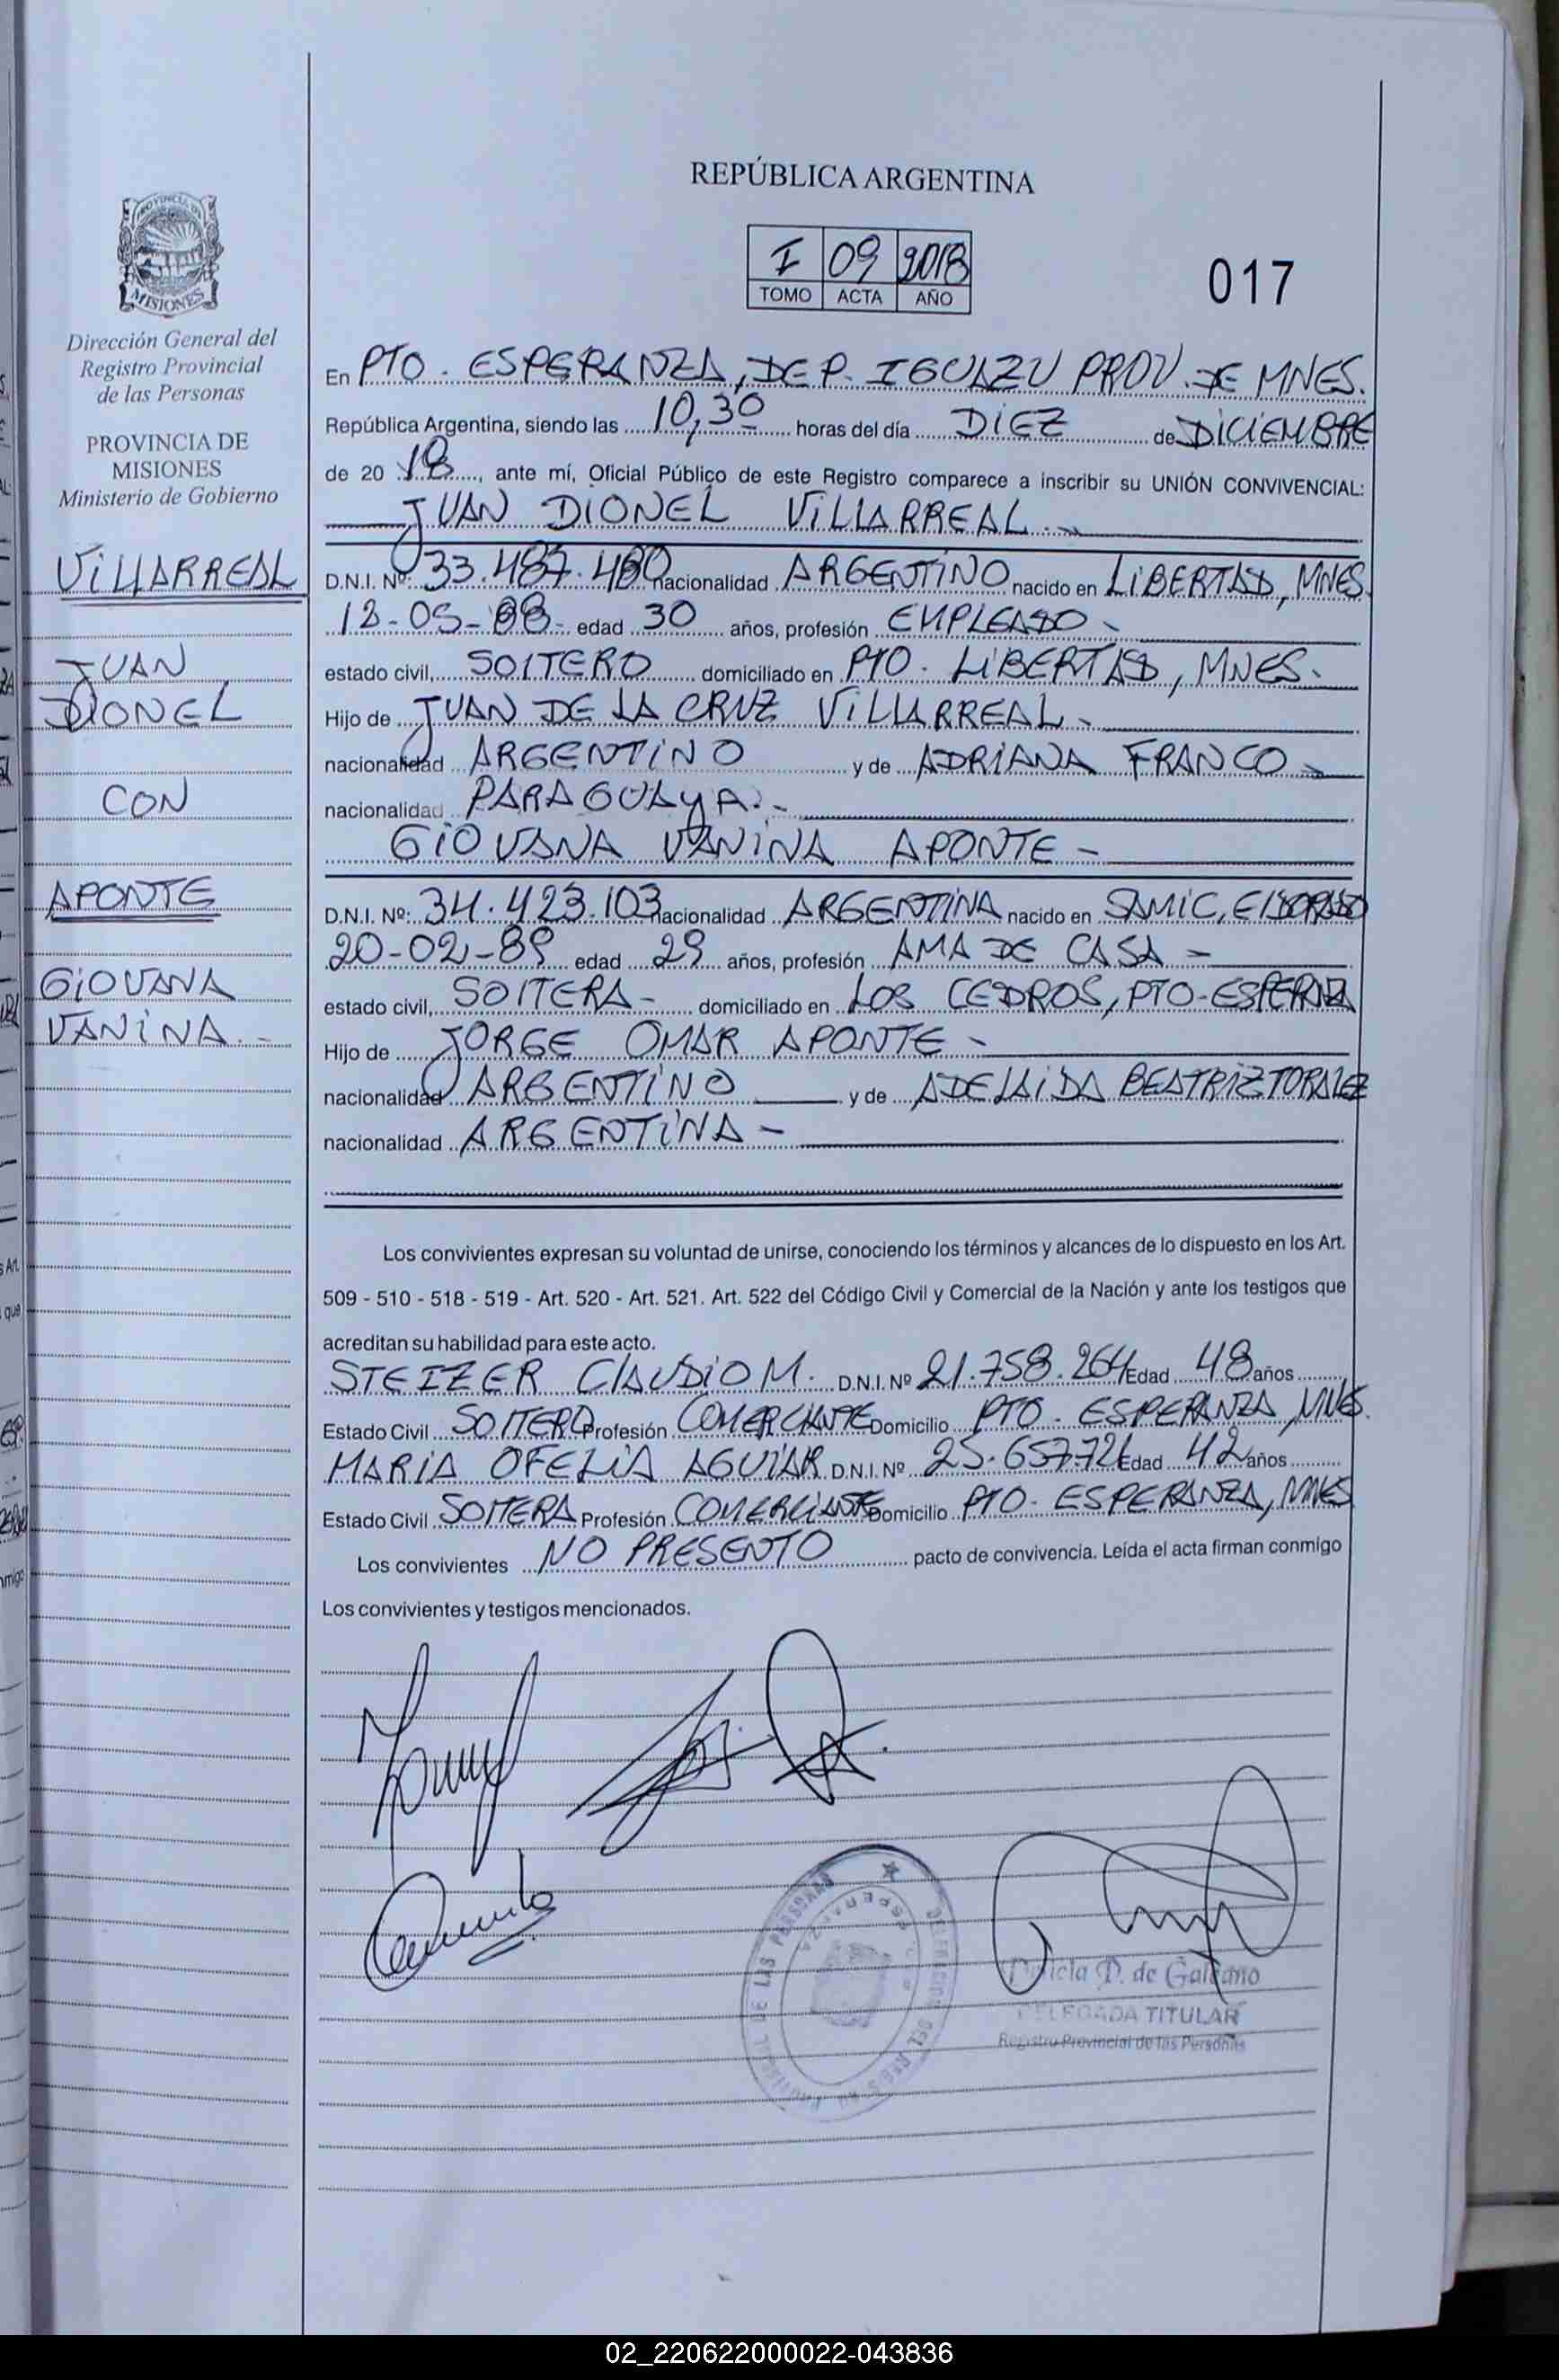 REPÚBLICA ARGENTINA
I 09 2018
TOMO ACTA AÑO
017
PROVINCIA DE
MISIONES
Dirección General del
Registro Provincial
de las Personas
PROVINCIA DE
MISIONES
Ministerio de Gobierno
VILLARREAL
JUAN
DIONEL
CON
APONTE
GIOVANA
VANINA.-
En PTO. ESPERANZA, DEP. IGUAZU PROV. DE MNES.
República Argentina, siendo las 10,30 horas del día DIEZ de DICIEMBRE
de 20 18, ante mí, Oficial Público de este Registro comparece a inscribir su UNIÓN CONVIVENCIAL:
JUAN DIONEL VILLARREAL.-
D.N.I. Nº: 33.487.480 nacionalidad ARGENTINO nacido en LIBERTAD, MNES.
18-05-88- edad 30 años, profesión EMPLEADO -
estado civil, SOLTERO domiciliado en PTO. LIBERTAD, MNES.
Hijo de JUAN DE LA CRUZ VILLARREAL -
nacionalidad ARGENTINO y de ADRIANA FRANCO -
nacionalidad PARAGUAYA.-
GIOVANA VANINA APONTE -
D.N.I. Nº: 34.423.103 nacionalidad ARGENTINA nacido en SAMIC, ELDORADO
20-02-89 edad 29 años, profesión AMA DE CASA -
estado civil, SOLTERA- domiciliado en LOS CEDROS, PTO-ESPERANZA
Hijo de JORGE OMAR APONTE -
nacionalidad ARGENTINO y de ADELAIDA BEATRIZ TORALEZ
nacionalidad ARGENTINA -
Los convivientes expresan su voluntad de unirse, conociendo los términos y alcances de lo dispuesto en los Art.
509 - 510 - 518 - 519 - Art. 520 - Art. 521. Art. 522 del Código Civil y Comercial de la Nación y ante los testigos que
acreditan su habilidad para este acto.
STEIZER CLAUDIO M. D.N.I. Nº 21.758.264 Edad 48 años
Estado Civil SOLTERO Profesión COMERCIANTE Domicilio PTO. ESPERANZA, MNES.
MARIA OFELIA AGUIAR D.N.I. Nº 25.657.721 Edad 42 años
Estado Civil SOLTERA Profesión COMERCIANTE Domicilio PTO. ESPERANZA, MNES
Los convivientes NO PRESENTO pacto de convivencia. Leída el acta firman conmigo
Los convivientes y testigos mencionados.
de Galeano
DELEGADA TITULAR
Registro Provincial de las Personas
02_220622000022-043836